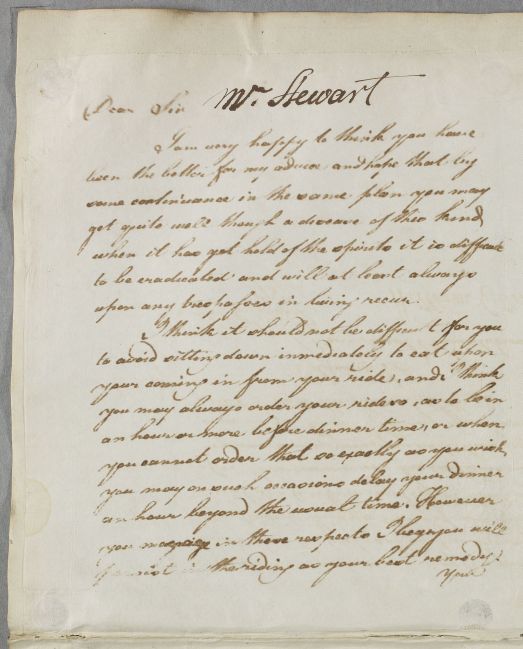 Dear Sir Mr. Stewart
I am very happy to think you have
been the better for my advice and hope that by
some continuance in the same plan you may
get quite well though a disease of this kind
when it has got hold of the spirits it is difficult
to be eradicated and will at least always
upon any trespasses in living recur.
I think it should not be difficult for you
to avoid sitting down immediately to eat upon
your coming in from your ride, and I think
you may always order your rides so, as to be in
an hour or more before dinner time, or when
you cannot order that so exactly as you wish,
you may on such occasions delay your dinner
an hour beyond the usual time. However
you may in these respects I beg you will
in the riding as your best remedy.
Your